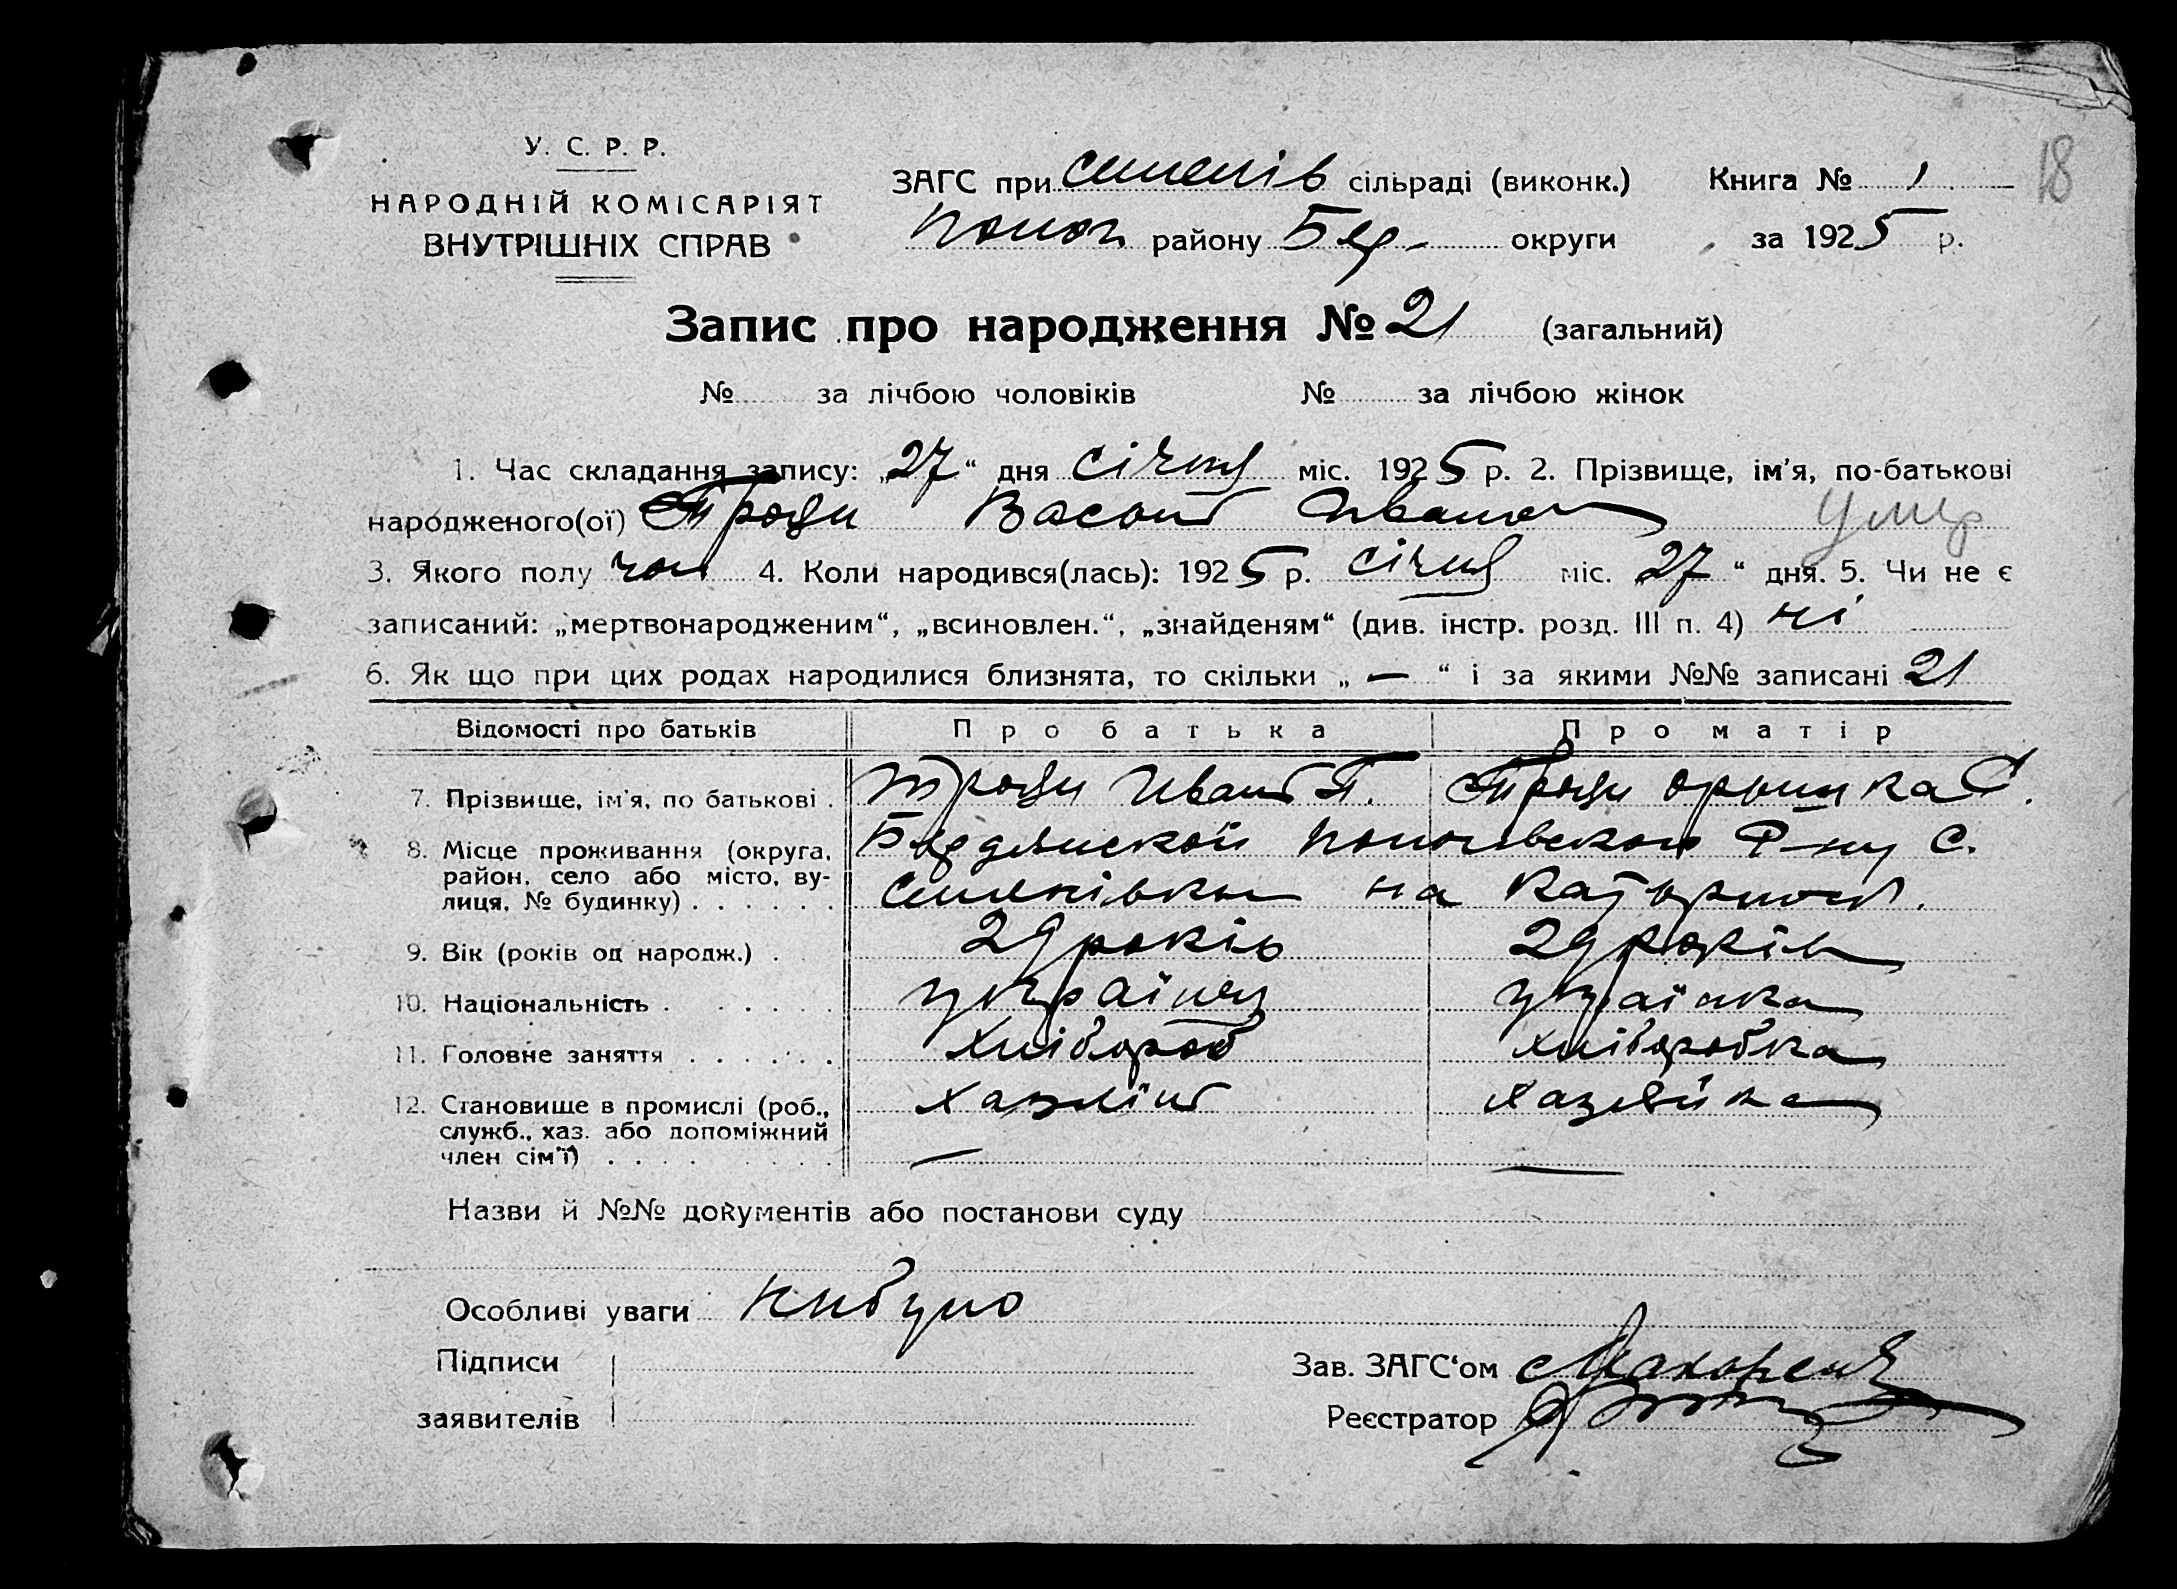 18
У. С. Р. Р.
НАРОДНІЙ КОМІСАРІЯТ
ВНУТРІШНІХ СПРАВ
ЗАГС при Семенів сільраді (виконк.) Книга № 1
району Бер. округи за 1925 р.
Запис про народження № 21 (загальний)
№ за лічбою чоловіків № за лічбою жінок
1. Час складання запису: „27“ дня січня міс. 1925 р. 2. Прізвище, ім'я, по-батькові
народженого(ої) Троцы Василь Иванов умер
3. Якого полу чол 4. Коли народився(лась): 1925 р. січня міс. „27“ дня. 5. Чи не є
записаний: „мертвонародженим“, „всиновлен.“, „знайденям“ (див. інстр. розд. III п. 4) ні
6. Як що при цих родах народилися близнята, то скільки „—“ і за якими №№ записані 21
Відомості про батьків Про батька Про матір
7. Прізвище, ім'я, по батькові . Троцы Иван П. Троцы Орынка С.
8. Місце проживання (округа, район, село або місто, вулиця, № будинку) . . . . . . Бердянской р-ну с.
Семенівка на
9. Вік (років од народж.) . 29 років 29 років
10. Національність . . . . . . українец українка
11. Головне заняття . . . . . . хлібороб хліборобка
12. Становище в промислі (роб., служб., хаз. або допоміжний член сім'ї) . . . . . . . . хазяїн хазяйка
— —
Назви й №№ документів або постанови суду
Особливі уваги нибуло
Підписи
заявителів
Зав. ЗАГС'ом
Реєстратор